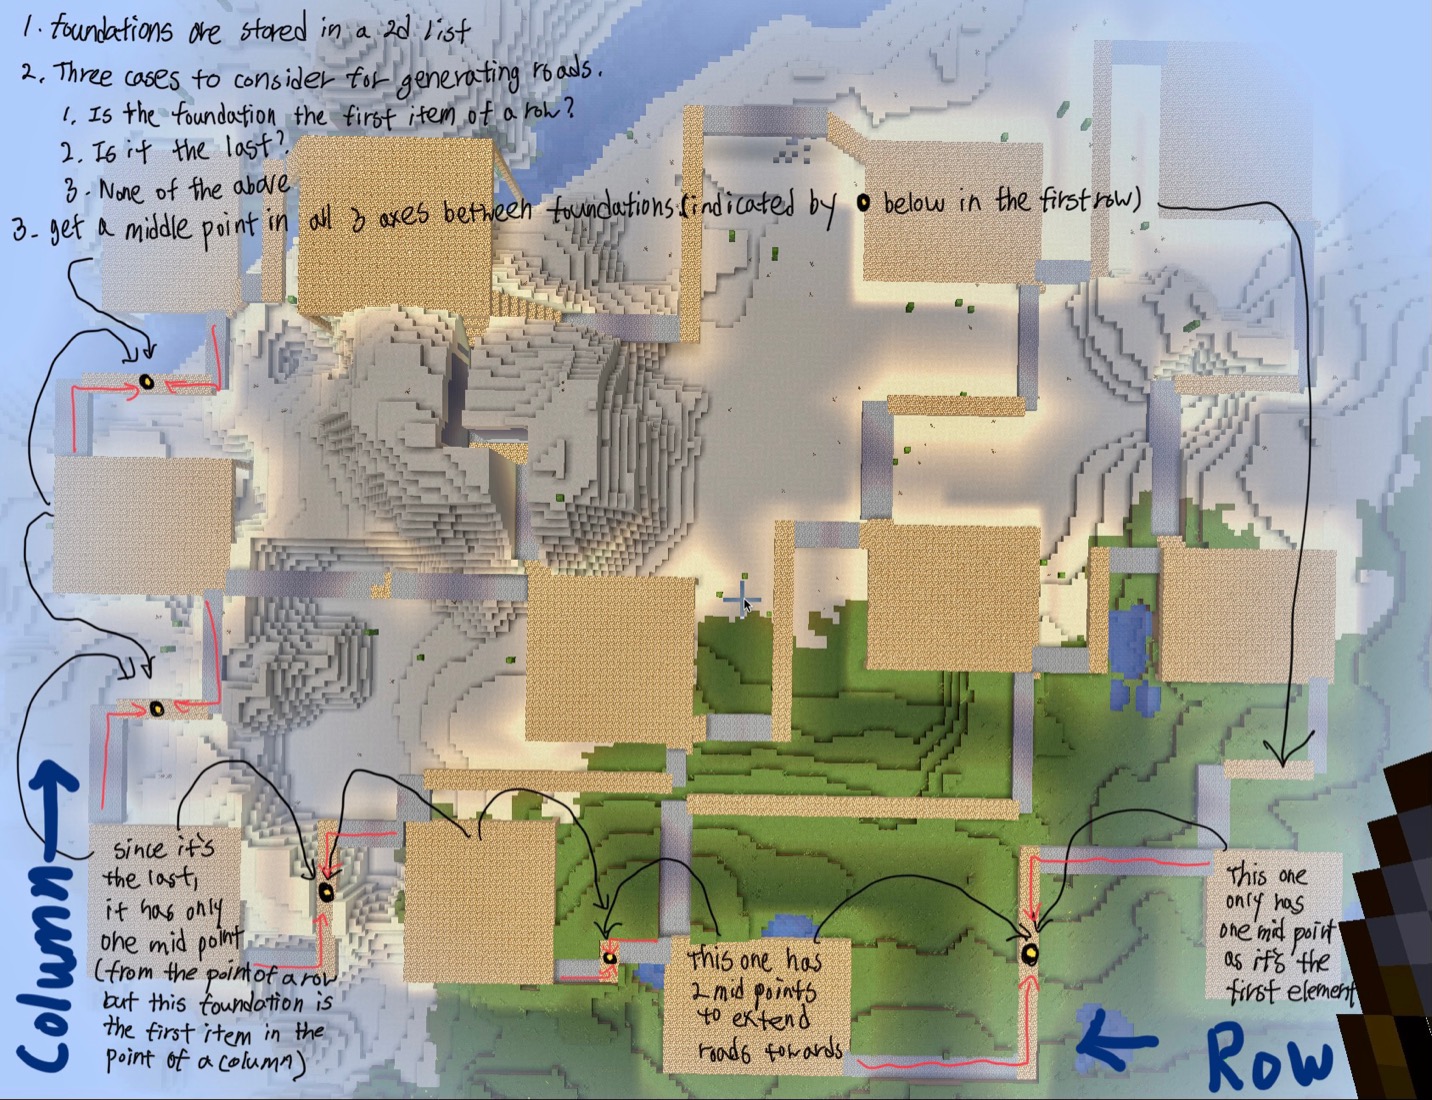 1. foundations are stored in a 2d list
2. Three cases to consider for generating roads.
1. Is the foundation the first item of a row?
2. Is it the last?
3. None of the above
3. get a middle point in all 3 axes between foundations.(indicated by 0 below in the first row)
Column
since it's
the last,
it has only
one mid point
(from the point of a row
but this foundation is
the first item in the
point of a column)
This one has
2 mid points
to extend
roads towards
This one
only has
one mid point
as it's the
first element
Row